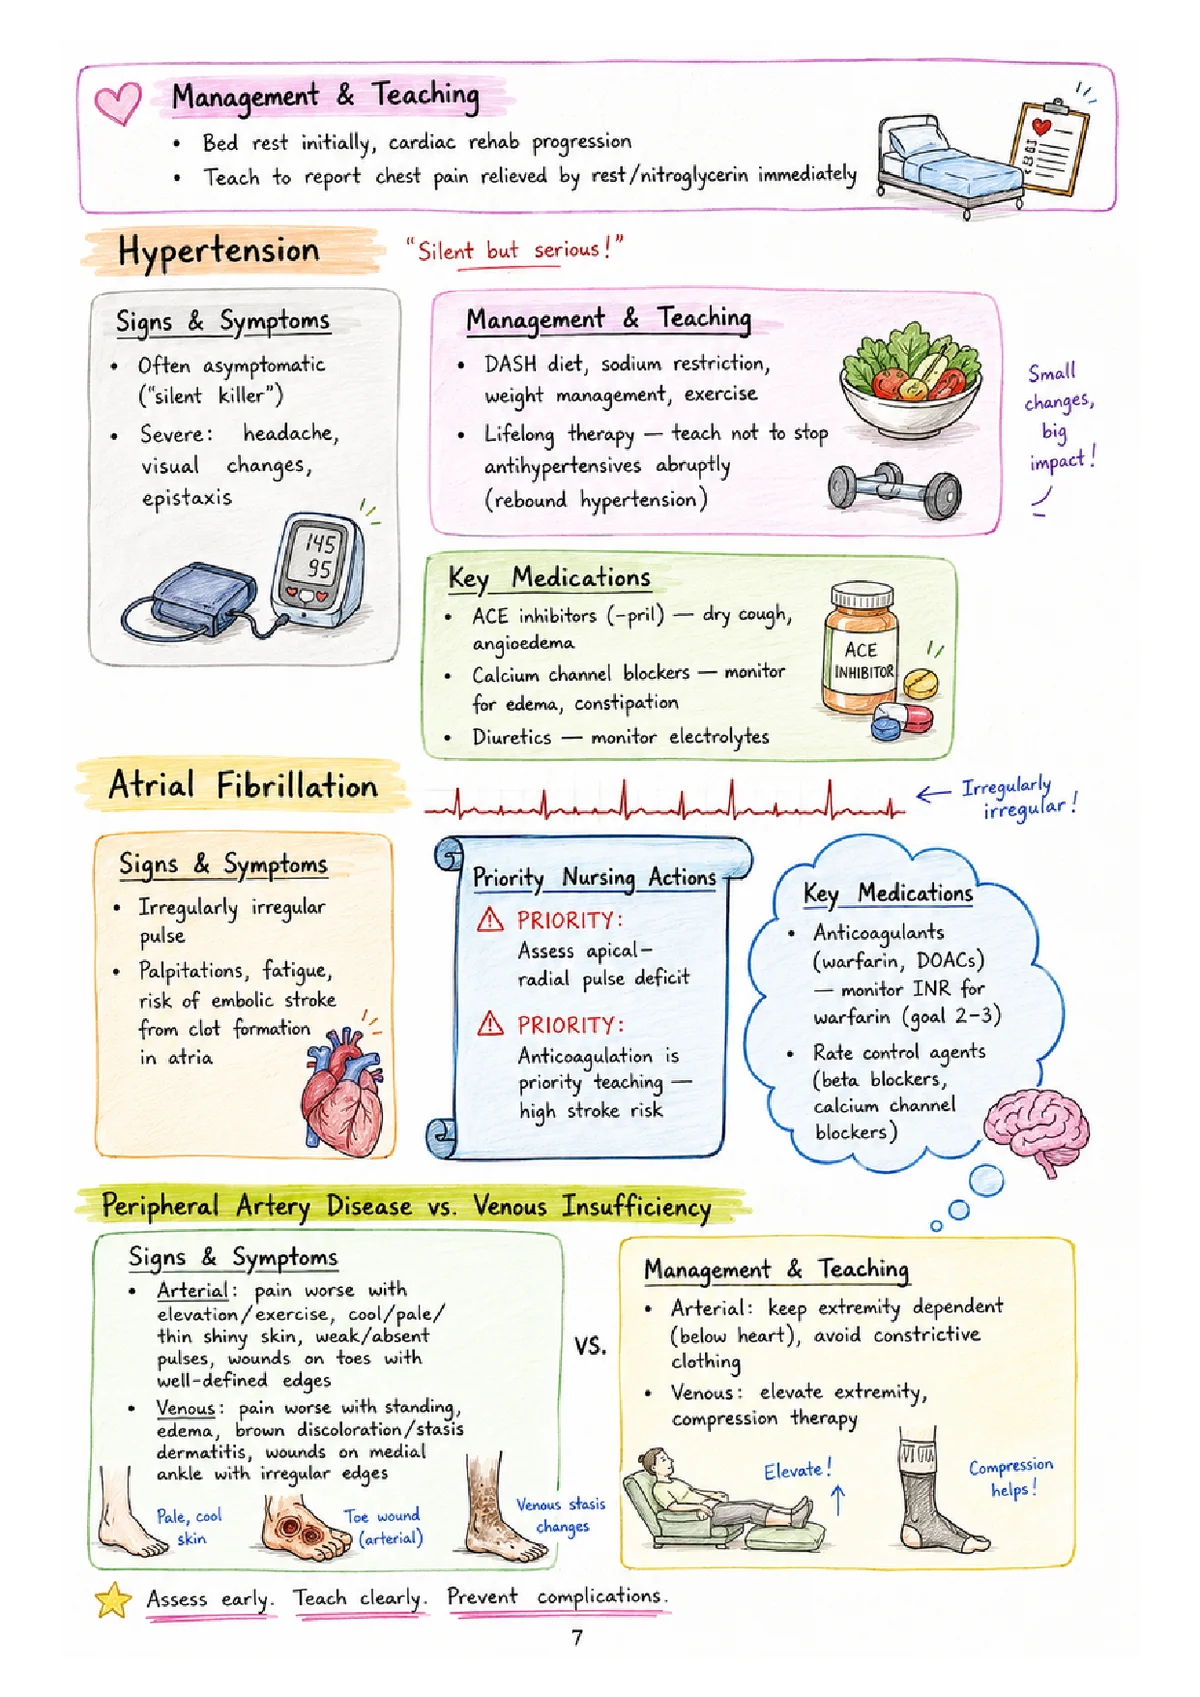 Management & Teaching
• Bed rest initially, cardiac rehab progression
• Teach to report chest pain relieved by rest/nitroglycerin immediately
Hypertension
"Silent but serious!"
Signs & Symptoms
• Often asymptomatic
("silent killer")
• Severe: headache,
visual changes,
epistaxis
145
95
Management & Teaching
• DASH diet, sodium restriction,
weight management, exercise
• Lifelong therapy — teach not to stop
antihypertensives abruptly
(rebound hypertension)
Small
changes,
big
impact!
Key Medications
• ACE inhibitors (-pril) — dry cough,
angioedema
• Calcium channel blockers — monitor
for edema, constipation
• Diuretics — monitor electrolytes
ACE
INHIBITOR
Atrial Fibrillation
Irregularly
irregular!
Signs & Symptoms
• Irregularly irregular
pulse
• Palpitations, fatigue,
risk of embolic stroke
from clot formation
in atria
Priority Nursing Actions
PRIORITY:
Assess apical-
radial pulse deficit
PRIORITY:
Anticoagulation is
priority teaching —
high stroke risk
Key Medications
• Anticoagulants
(warfarin, DOACs)
— monitor INR for
warfarin (goal 2-3)
• Rate control agents
(beta blockers,
calcium channel
blockers)
Peripheral Artery Disease vs. Venous Insufficiency
Signs & Symptoms
• Arterial: pain worse with
elevation/exercise, cool/pale/
thin shiny skin, weak/absent
pulses, wounds on toes with
well-defined edges
• Venous: pain worse with standing,
edema, brown discoloration/stasis
dermatitis, wounds on medial
ankle with irregular edges
Pale, cool
skin
Toe wound
(arterial)
Venous stasis
changes
VS.
Management & Teaching
• Arterial: keep extremity dependent
(below heart), avoid constrictive
clothing
• Venous: elevate extremity,
compression therapy
Elevate!
Compression
helps!
Assess early. Teach clearly. Prevent complications.
7